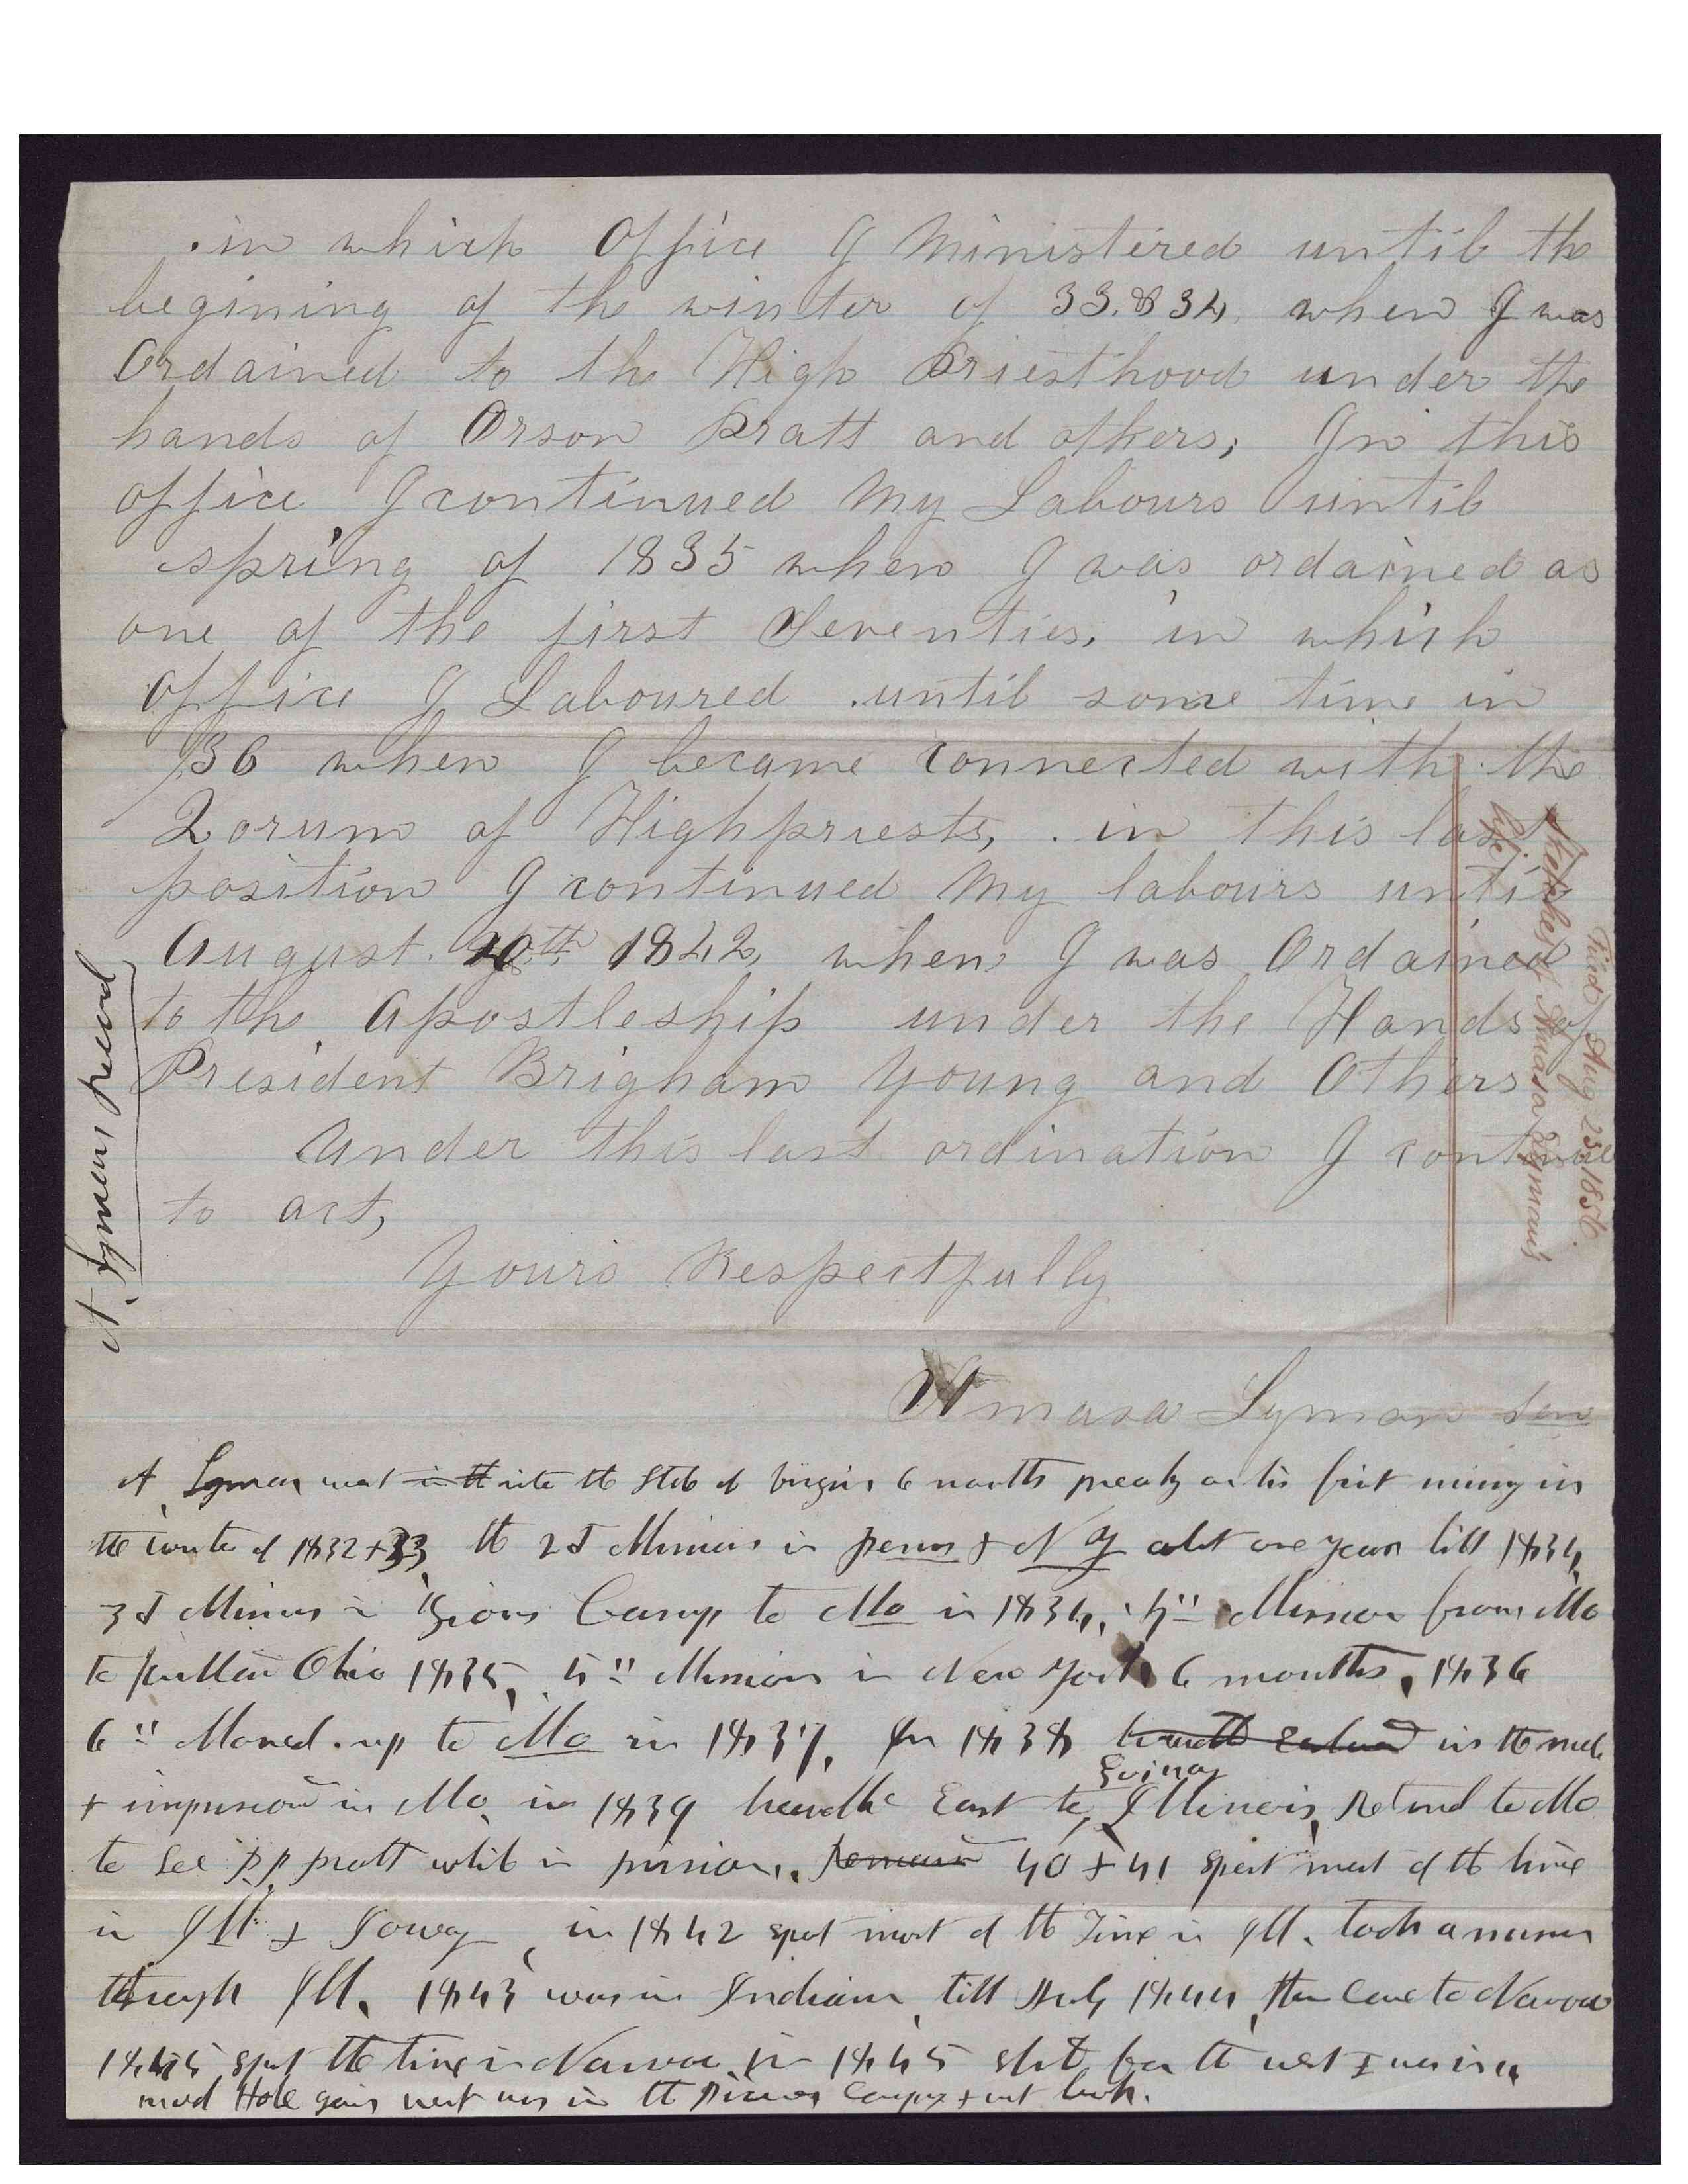 in which Office I Ministered until the
begining of the winter of 33.&34, when I was
Ordained to the High Priesthood under the
hands of Orson Pratt and others; In this
office I continued My Labours until
spring of 1835 when I was ordained as
one of the first Seventies, in which
office I Laboured .until some time in
36 when I became connected with the
Qorum of Highpriests, . in this last
position I continued My labours until
August. 20th 1842, when I was Ordained
to the Apostleship under the Hands of
President Brigham Young and Others
under this last ordination I continue
to act,
Yours Respectfully
Amasa Lyman Sen
A. Lymans record
Sketches of Amasa Lyman's
life.
Filed Aug 25, 1856.
A Lyman went in tt into the State of virginia 6 months preachg on his first mission in
the winter of 1832+33, the 2d Mission in penn + N Y about one year till 1834,
3d Mission in Zions Camp to Mo in 1834, 4" Mission from Mo
to Kirtland Ohio 1835, 5" Mission in New York 6 months, 1836
6" Moved up to Mo in 1837, In 1838 in the mobs
Quincy
+ imprisond in Mo, in 1839 travelld East to Illinois, Returnd to Mo
to see P P pratt while in prision. Remaind 40 + 41 spent most of the time
in Ill + Ioway, in 1842 spent most of the Time in Ill. took a mission
through Ill. 1843 was in Indiana, till July 1844, then Came to Nauvoo
1845 spent the time in Nauvoo, in 1845 for the west + was in a
mud Hole going west was in the Pioneer Company + went back.